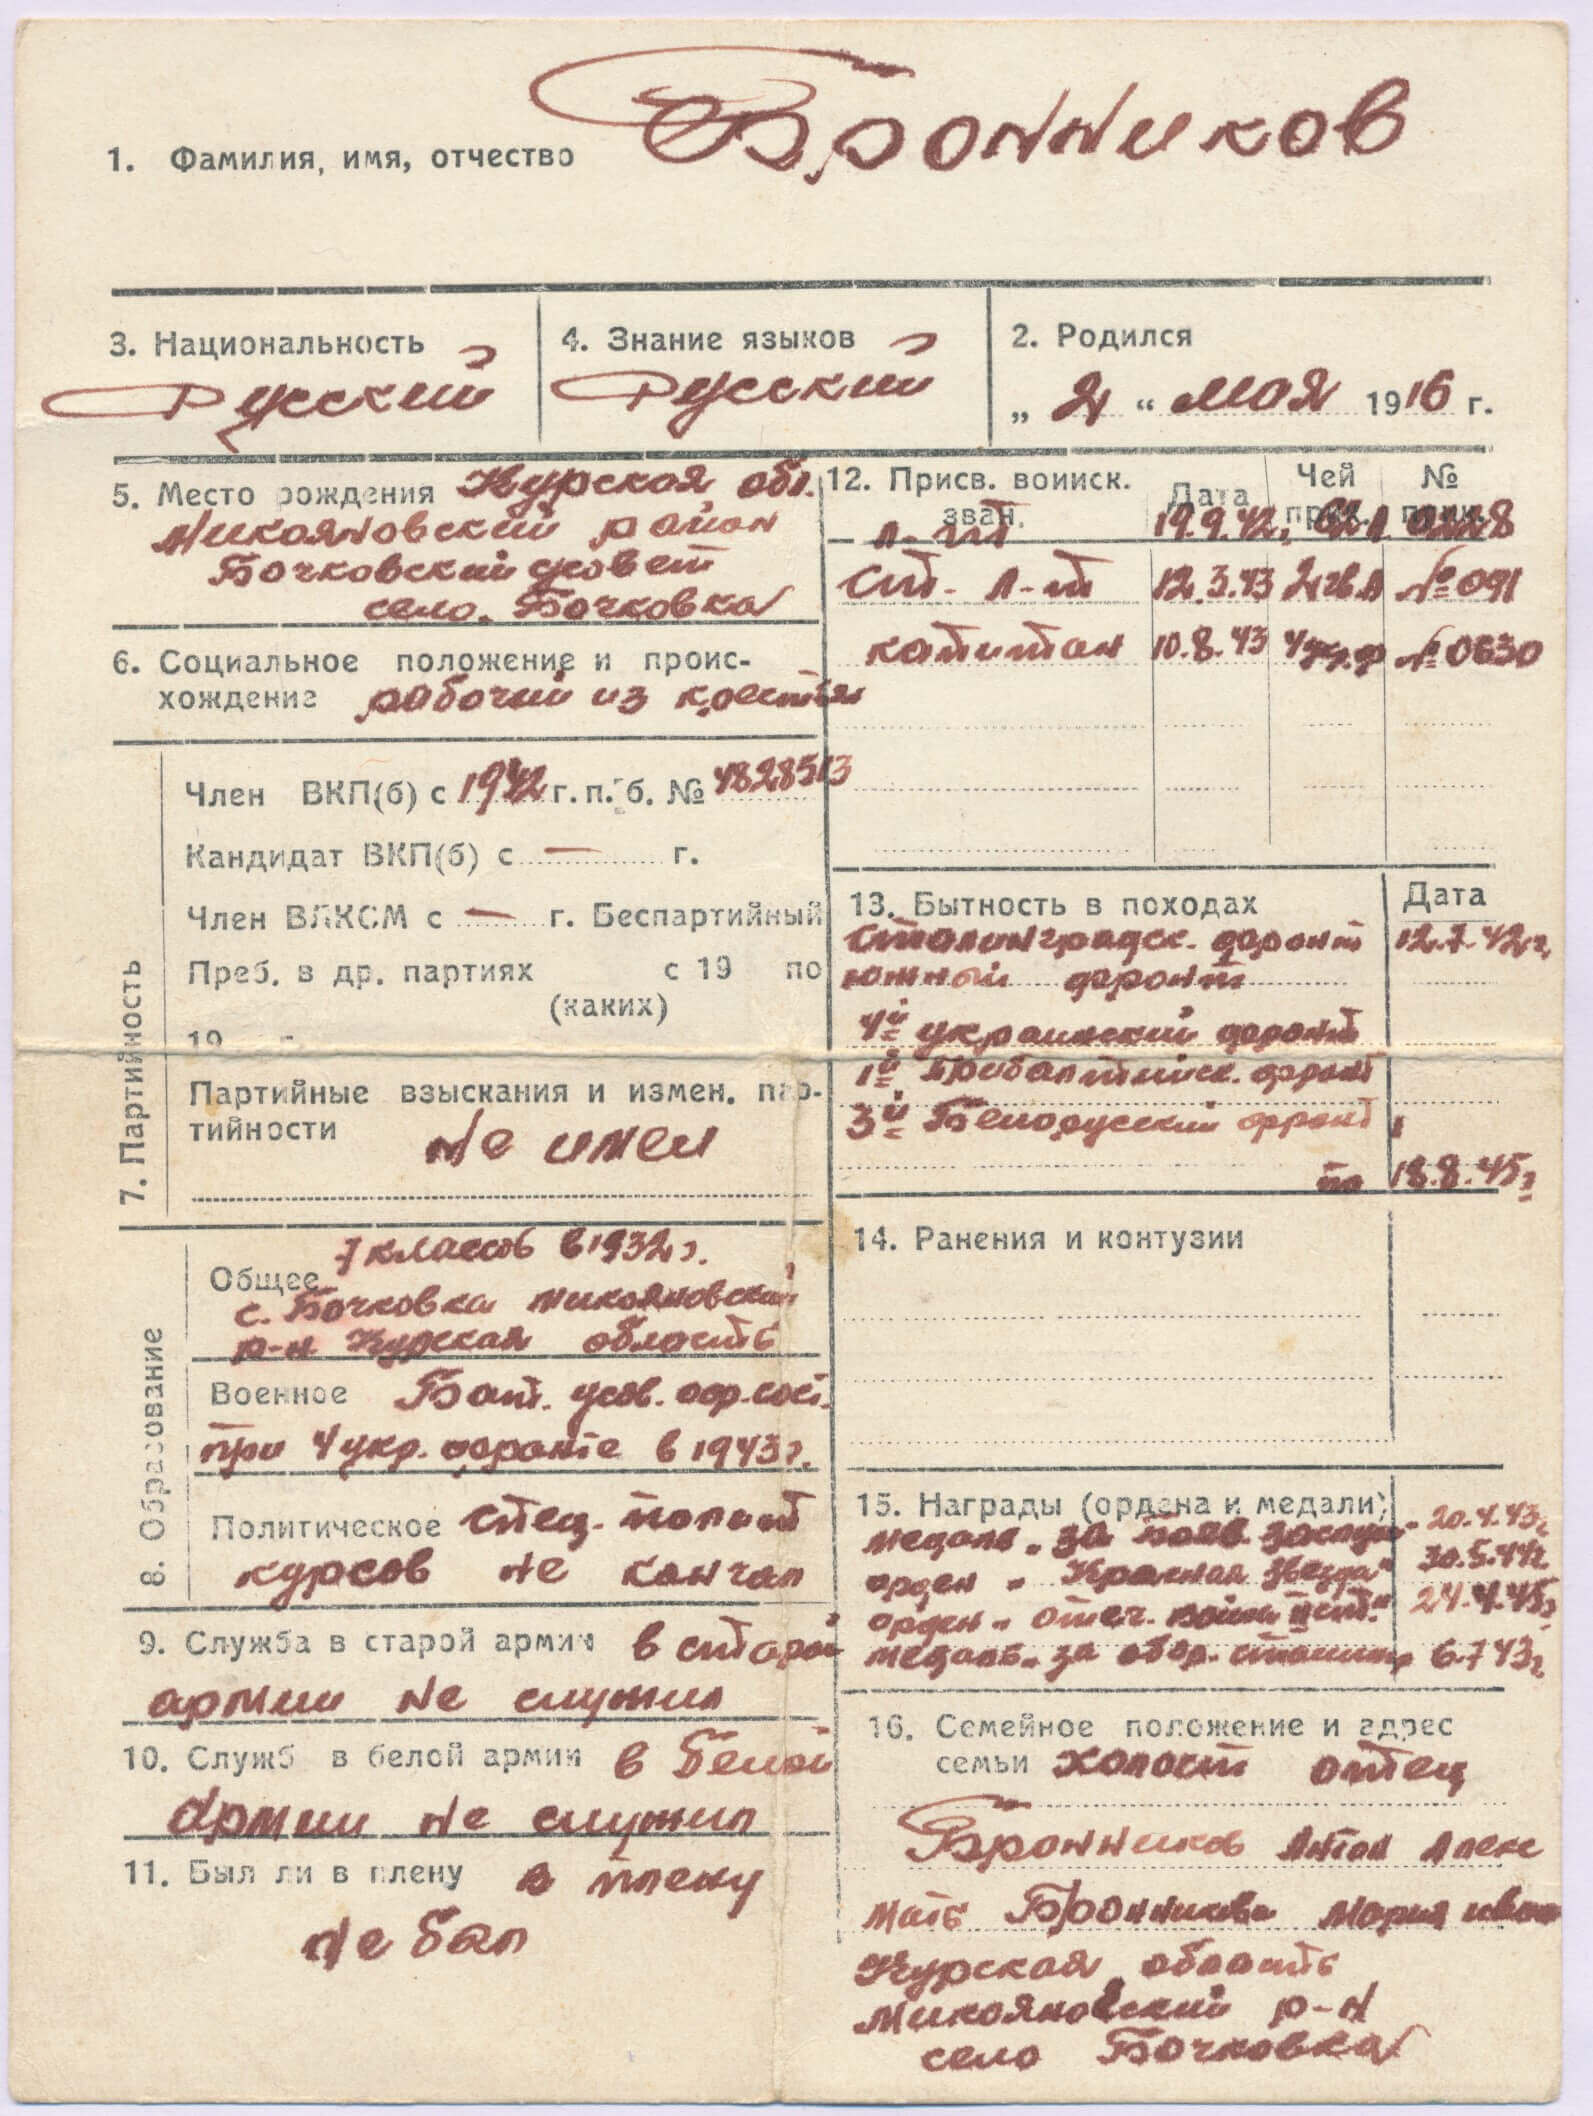 Бронников
1. Фамилия, имя, отчество
3. Национальность
Русский
4. Знание языков
Русский
2. Родился
„ 2 “ мая 1916 г.
5. Место рождения Курская обл.
Микояновский район
Бочковский совет
село. Бочковка
6. Социальное положение и проис-
хождение рабочий из крестьян
7. Партийность
Член ВКП(б) с 1942 г. п. б. № 4828513
Кандидат ВКП(б) с — г.
Член ВЛКСМ с — г. Беспартийный
Преб. в др. партиях с 19 по
(каких)
19
Партийные взыскания и измен. пар-
тийности
не имел
8. Образование
7 классов в 1932 г.
Общее
с. Бочковка Микояновский
р-н Курская область
Военное Бат. усов. офр. сост.
при 4 укр. фронте в 1943 г.
Политическое спец. полит
курсов не кончал
9. Служба в старой армии в старой
армии не служил
10. Служб в белой армии в белой
армии не служил
11. Был ли в плену в плену
не был
12. Присв. воинск. зван. Дата Чей прик. № прик.
л-нт 19.9.42г.
ст. л-нт 12.3.43 2 гв. А № 091
капитан 10.8.43 4 укр. ф № 0630
13. Бытность в походах Дата
Сталинградск. фронт 12.7.42г.
южный фронт
4й украинский фронт
1й Прибалтийск. фронт
3й Белорусский фронт
по 18.8.45г
14. Ранения и контузии
15. Награды (ордена и медали)
медаль „за боев. заслуги“ 20.4.43г
орден „Красная звезда“ 30.5.44г
орден „отеч. войны II ст.“ 24.4.45г
медаль „за обор. сталингр 6.7.43г
16. Семейное положение и адрес
семьи холост отец
Бронников Антон Алекс
мать Бронникова Мария Иван
Курская область
Микояновский р-н
село Бочковка